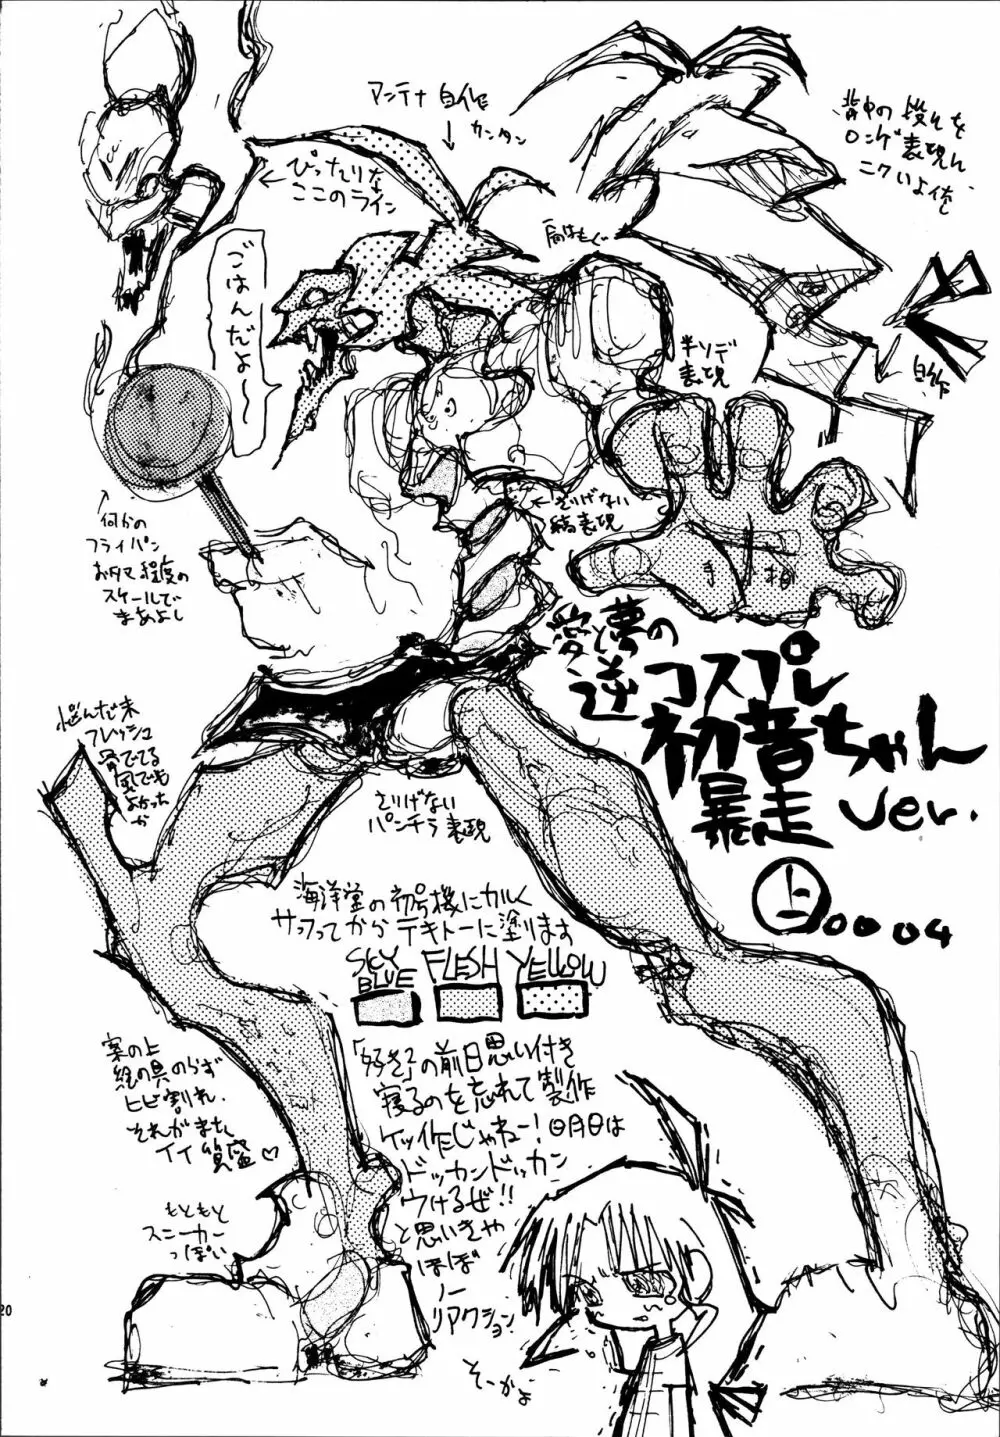 アンテナ自作
カンタン
ぴったりな
ここのライン
背中の段々を
ロンゲ表現に
ごはんだよ～
肩はもぐ
半ソデ
表現
自作
さりげない
縞表現
手
相
何かの
フライパン
おタマ程度の
スケールで
まあよし
愛と夢の
逆コスプレ
初音ちゃん
暴走ver.
上0004
悩んだ末
フレッシュ
骨でてる
風でも
よかったか
さりげない
パンチラ表現
海洋堂の初号機にカルく
サフってからテキトーに塗ります
SKY BLUE
FLESH
YELLOW
案の上
絵の具のらず
ヒビ割れ。
それがまた
イイ
もともと
スニーカー
っぽい
「好き?」の前日思い付き
寝るのを忘れて製作
ケッ作じゃねー!明日は
ドッカンドッカン
ウけるぜ!!
と思いきや
ほぼ
ノー
リアクション
そーかよ
20